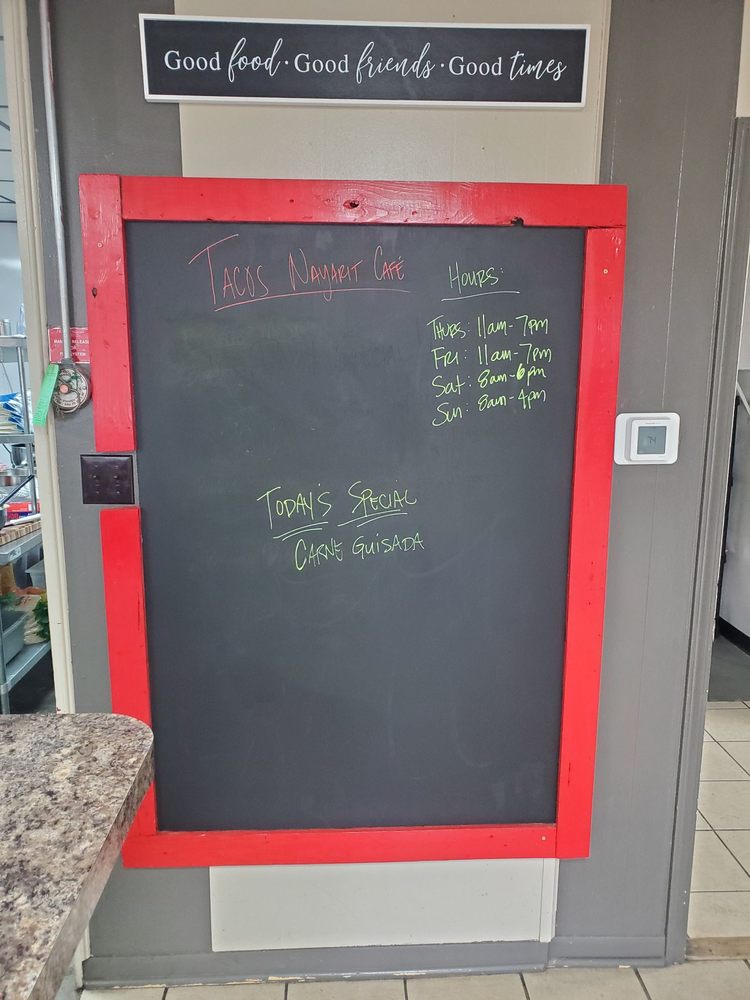 Good food · Good friends · Good times
TACOS NAYARIT CAFÉ
HOURS:
THURS: 11am - 7pm
FRI: 11am - 7pm
Sat: 8am - 6pm
Sun: 8am - 4pm
TODAY'S SPECIAL
CARNE GUISADA
74